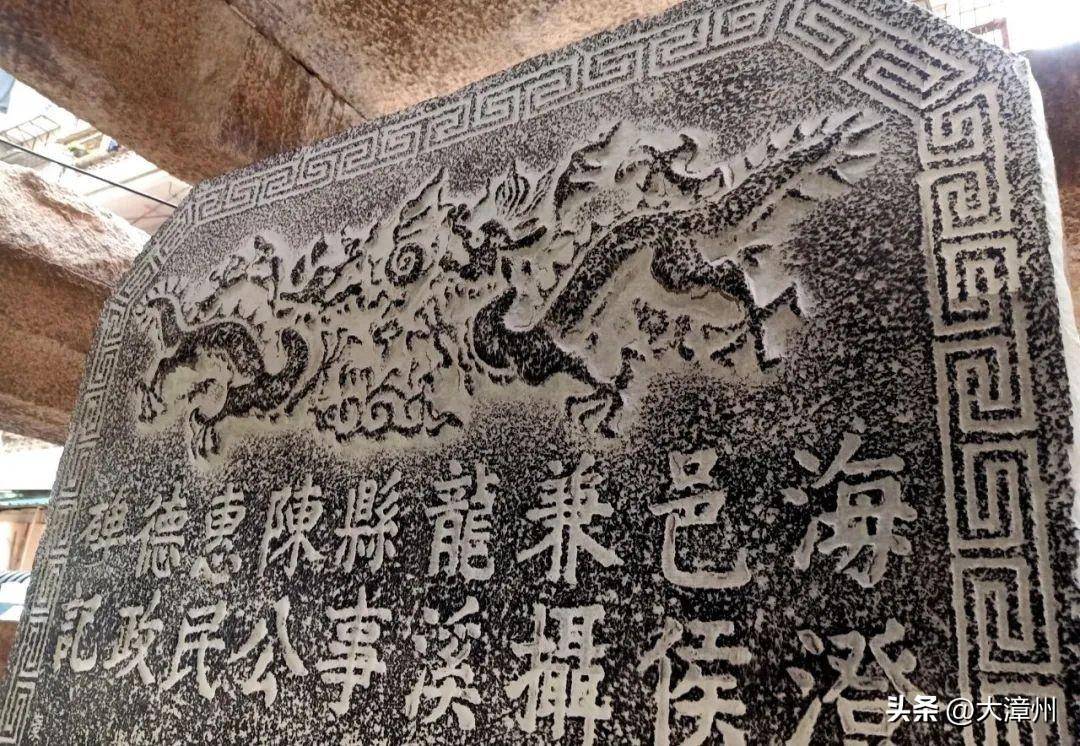 海澄
邑侯
兼攝
龍溪
縣事
陳公
惠民
德政
碑記
头条 @大漳州